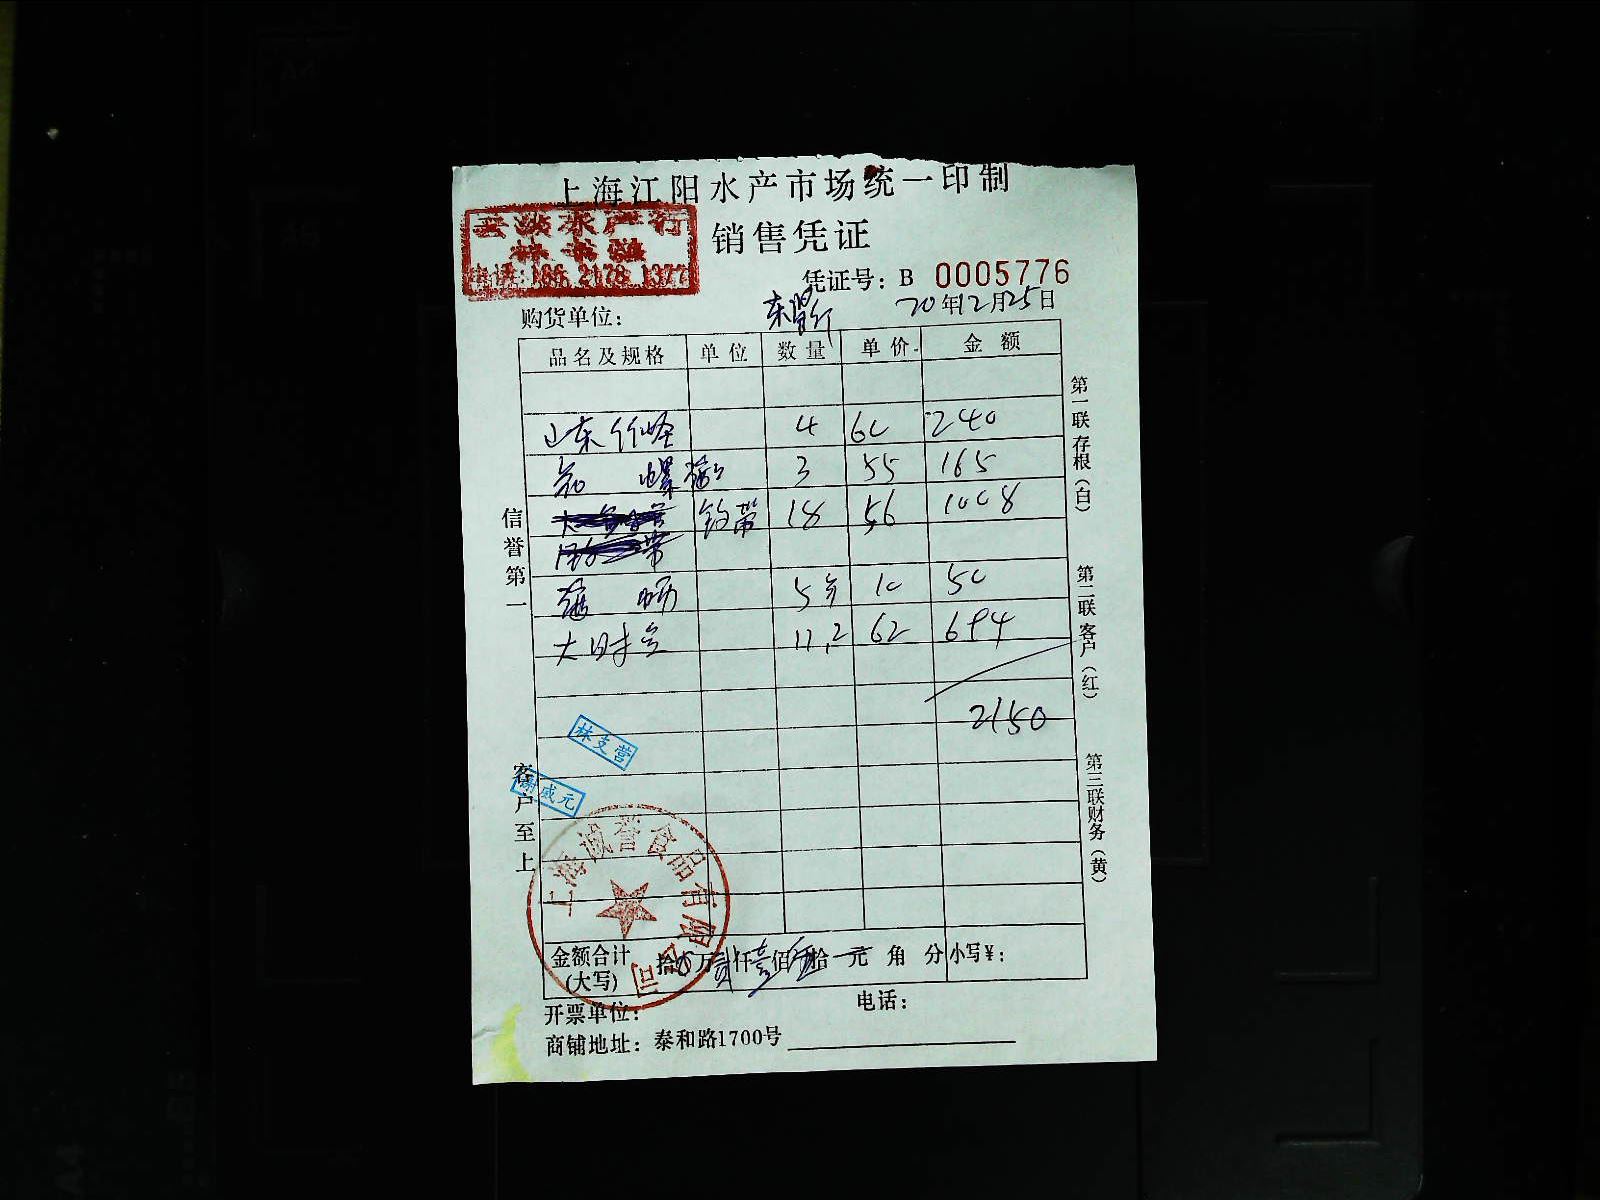 上海江阳水产市场统一印制
水产行
林书强
电话:186 2178 1377
销售凭证
凭证号: B 0005776
购货单位: 20年12月25日
品名及规格 单位 数量 单价 金额
山东竹蛏 4 60 240
螺 3 55 165
带 18 56 1008
5 10 50
大 11.2 62 694
2150
林支营
谢威元
上海诚誉食品有限公司
金额合计(大写) 拾 万贰仟壹佰伍拾 元 角 分 小写¥:
开票单位: 电话:
商铺地址: 泰和路1700号
信誉第一
客户至上
第一联 存根(白)
第二联 客户(红)
第三联 财务(黄)